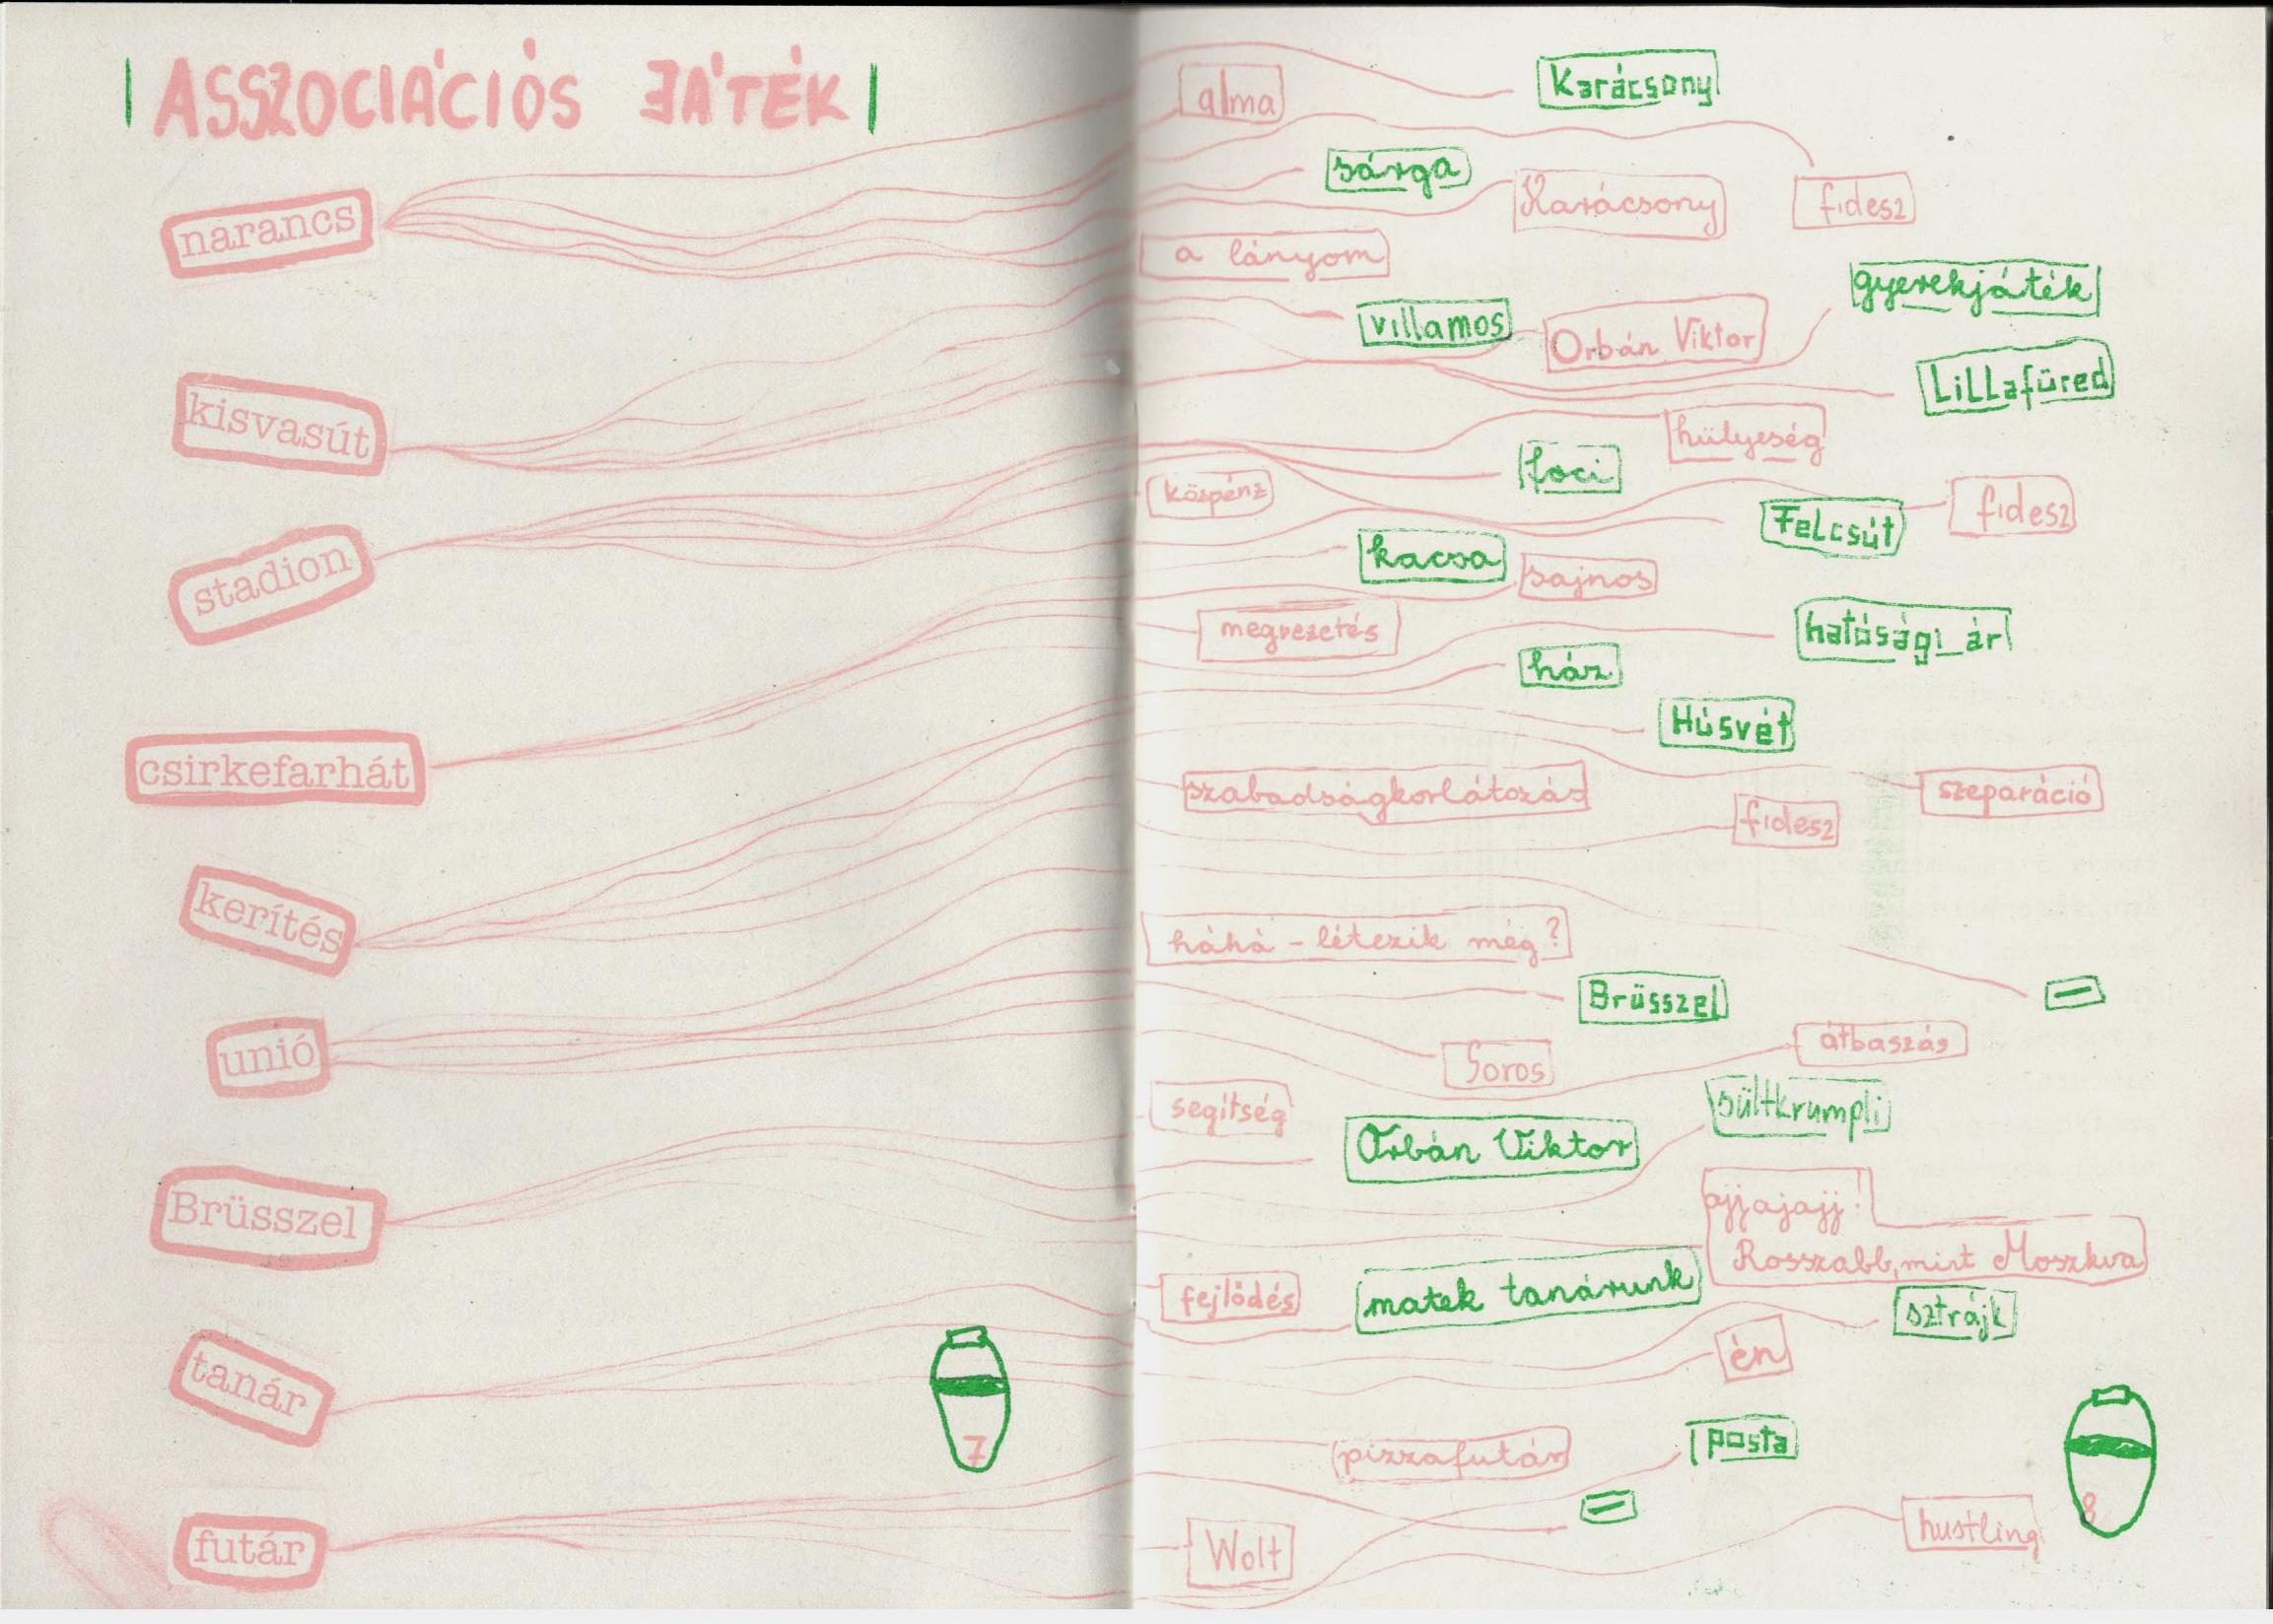 ASSZOCIÁCIÓS JÁTÉK
narancs
kisvasút
stadion
csirkefarhát
kerítés
unió
Brüsszel
tanár
futár
7
alma
Karácsony
sárga
Karácsony
fidesz
a lányom
gyerekjáték
villamos
Orbán Viktor
Lillafüred
hülyeség
foci
közpénz
fidesz
Felcsút
kacsa
sajnos
megvezetés
hatósági ár
ház
Húsvét
szabadságkorlátozás
szeparáció
fidesz
háhá - létezik még?
—
Brüsszel
Soros
átbaszás
segítség
sültkrumpli
Orbán Viktor
ajjajajj!
Rosszabb, mint Moszkva
fejlődés
matek tanárunk
sztrájk
én
pizzafutár
posta
—
Wolt
hustling
8